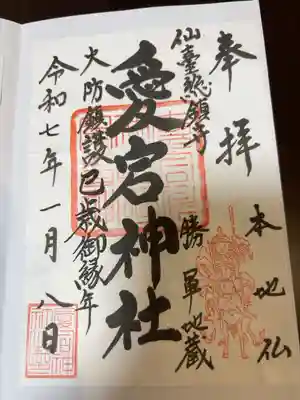 奉拝
本地仏
仙臺総鎮守
勝軍地蔵
愛宕神社
火防鎮護
巳歳御縁年
令和七年一月八日